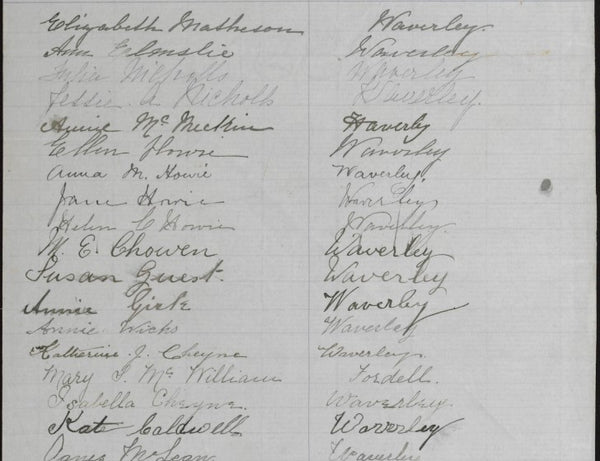 Elizabeth Matheson Waverley.
Ann Elmslie Waverley
Julia Nicholls Waverley
Jessie. A. Nicholls Waverley.
Annie McMeekin Waverly
Ellen Howie Waverley
Anna M. Howie Waverley.
Jane Howie Waverley
Helen C Howie Waverley.
M. E. Chowen Waverley
Susan Guest. Waverley
Annie Girk Waverley
Annie Wicks Waverley
Katherine. J. Cheyne Waverley.
Mary J. McWilliam Fordell.
Isabella Cheyne. Waverley.
Kate Caldwell Waverley
Janes McLean Waverley